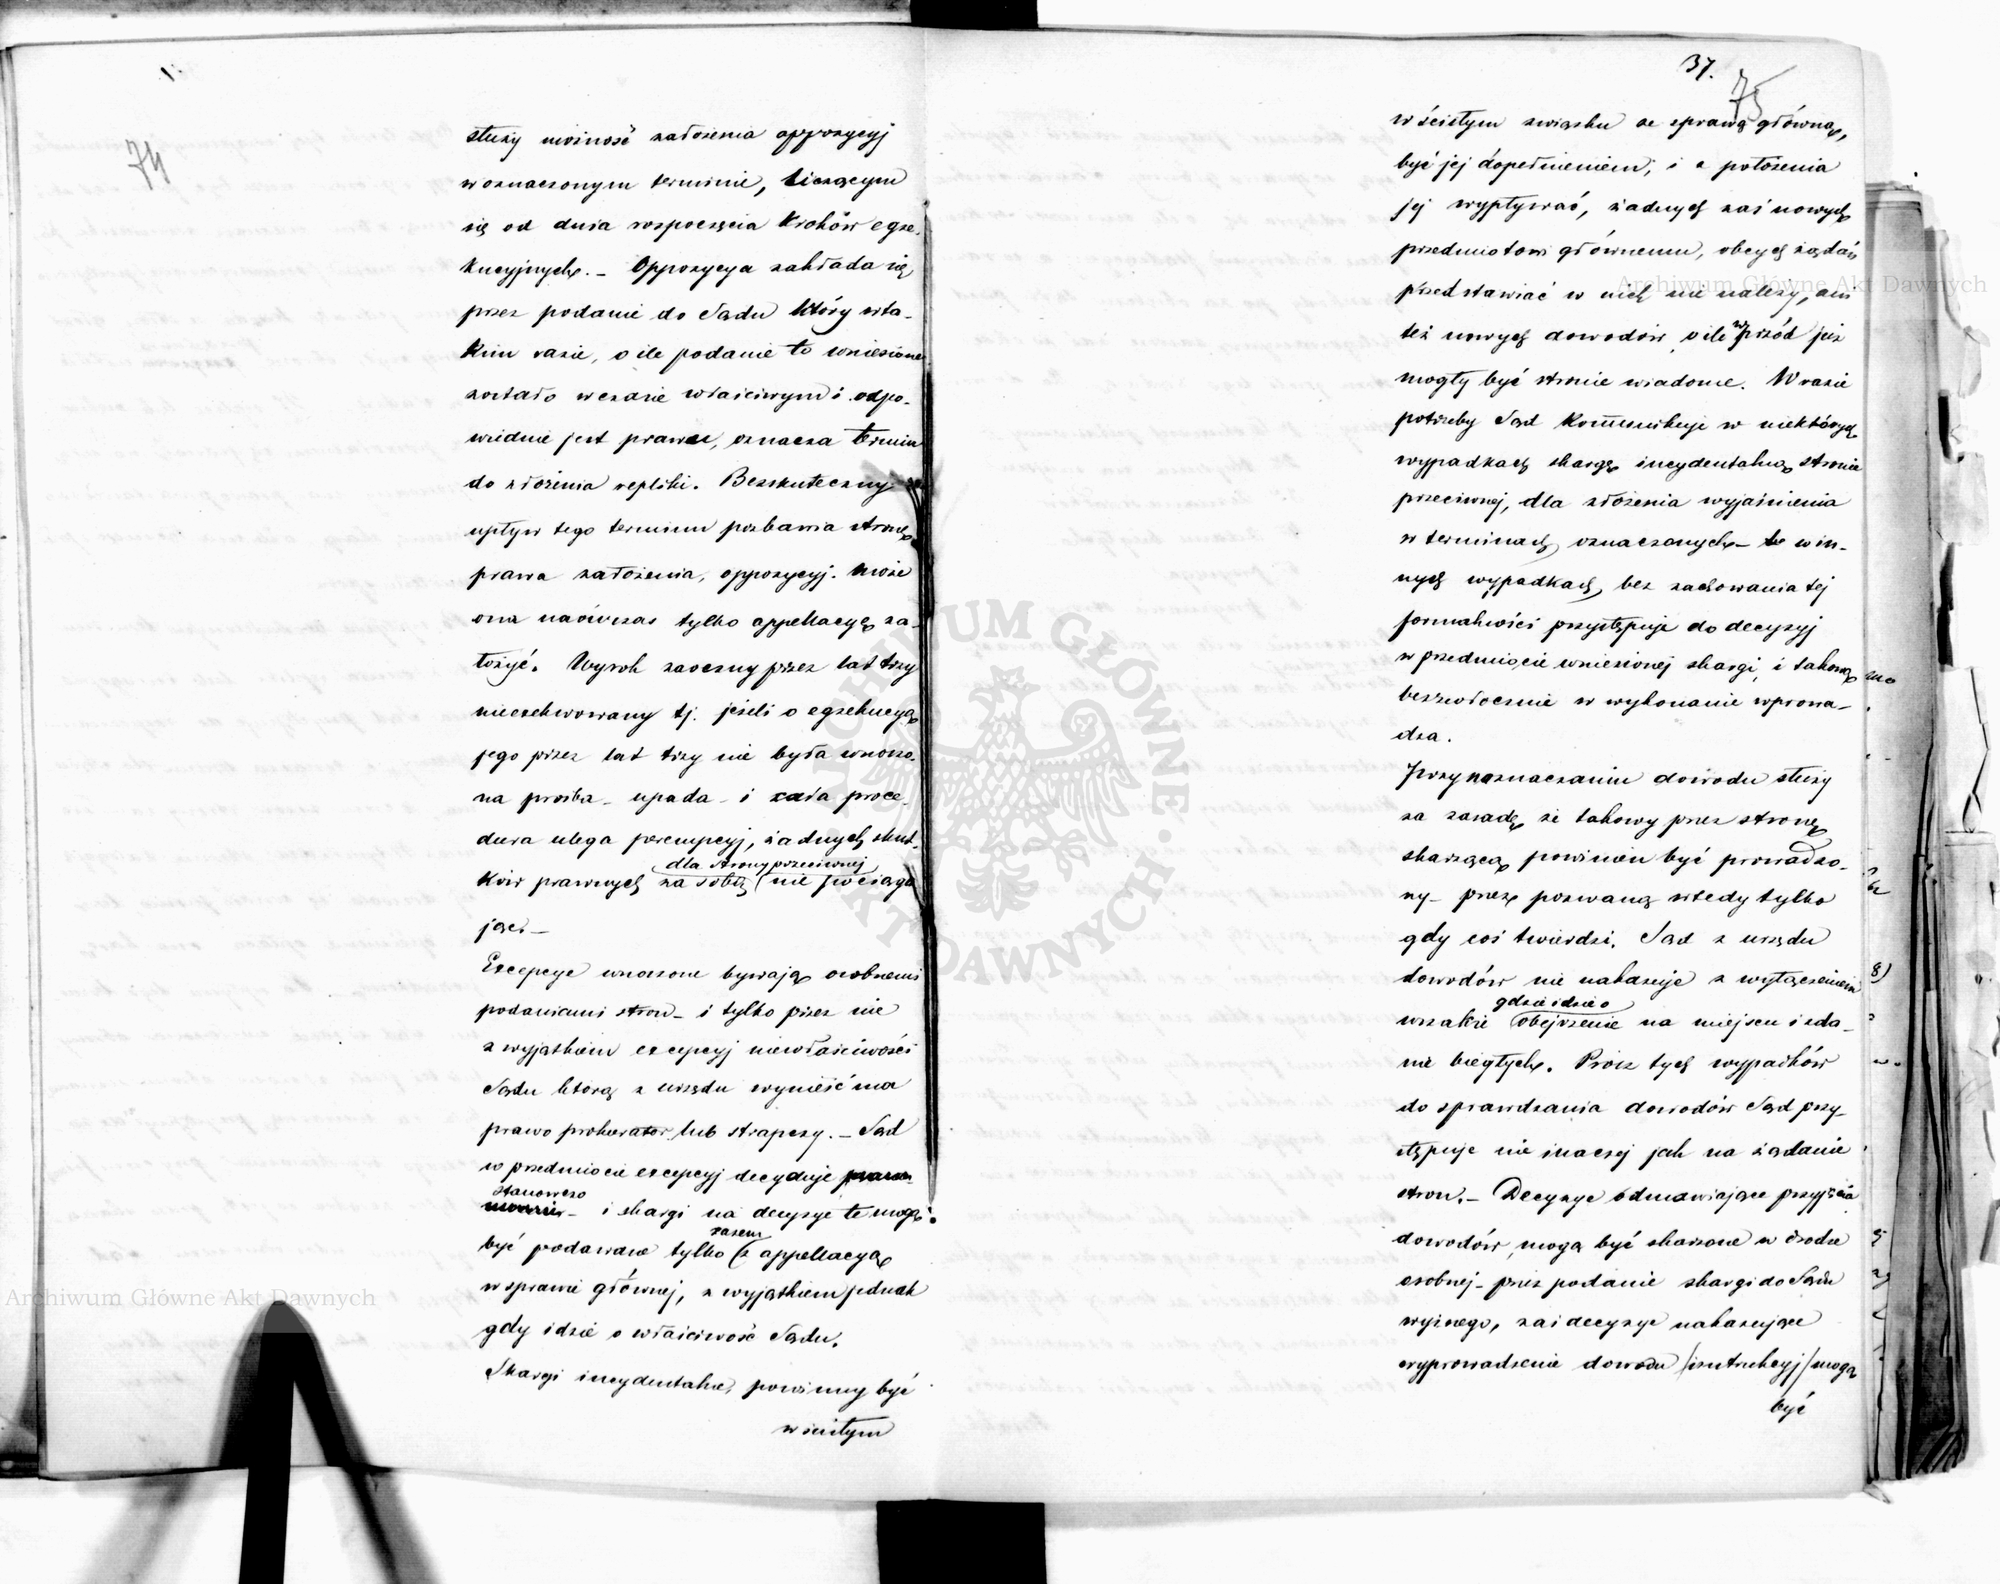 74
służy możność założenia oppozycyj
w oznaczonym terminie, liczącym
się od dnia rozpoczęcia kroków egze-
kucyjnych. – Oppozycya zakłada się
przez podanie do Sądu który w ta-
kim razie, o ile podanie to wniesione
zostało w czasie właściwym i odpo-
wiednie jest prawu, oznacza termin
do złożenia repliki. Bezskuteczny
upływ tego terminu pozbawia stronę
prawa założenia, oppozycyj. może
ona naówczas tylko appellacyę za-
łożyć. Wyrok zaoczny przez lat trzy
nieexekwowany tj. jeśli o egzekucyą
jego przez lat trzy nie była wnoszo-
na prośba – upada – i cała proce-
dura ulega perempcyj, żadnych skut-
dla strony przeciwnej
ków prawnych za sobą nie pociąga
jąc. –
Excepcye wnoszone bywają osobnemi
podaniami stron – i tylko przez nie
z wyjątkiem excepcyj niewłaściwości
Sądu którą z urzędu wynieść ma
prawo prokurator lub strapczy. – Sąd
w przedmiocie excepcyj decyduje
stanowczo
– i skargi na decyzye te mogą
razem
być podawane tylko z appellacyą
w sprawie głównej, z wyjątkiem jednak
gdy idzie o właściwość Sądu.
Skargi incydentalne, powinny być
w ścisłym
37.
75
w ścisłym związku ze sprawą główną,
być jej dopełnieniem, i z położenia
jej wypływać, żadnych zaś nowych
przedmiotowi głównemu, obcych żądań
przedstawiać w nich nie należy, ani
też nowych dowodów o ile wprzód już
mogły być stronie wiadome. W razie
potrzeby Sąd komunikuje w niektórych
wypadkach skargę incydentalną stronie
przeciwnej, dla złożenia wyjaśnienia
w terminach oznaczonych – w in-
nych wypadkach, bez zachowania tej
formalności przystępuje do decyzyj
w przedmiocie wniesionej skargi, i takową
bezzwłocznie w wykonanie wprowa-
dza.
Przy naznaczaniu dowodu służy
za zasadę że takowy przez stronę
skarżącą powinien być prowadzo-
ny – przez pozwaną wtedy tylko
gdy coś twierdzi. Sąd z urzędu
dowodów nie nakazuje z wyłączeniem
gdzie idzie o
wszakże obejrzenie na miejscu i zda-
nie biegłych. Prócz tych wypadków
do sprawdzania dowodów Sąd przy-
stępuje nie inaczej jak na żądanie
stron. – Decyzye odmawiające przyjęcia
dowodów, mogą być skarżone w drodze
osobnej – przez podanie skargi do Sądu
wyższego, zaś decyzye nakazujące
wyprowadzenie dowodu /instrukcyj/ mogą
być
Archiwum Główne Akt Dawnych
Archiwum Główne Akt Dawnych
ARCHIWUM GŁÓWNE AKT DAWNYCH